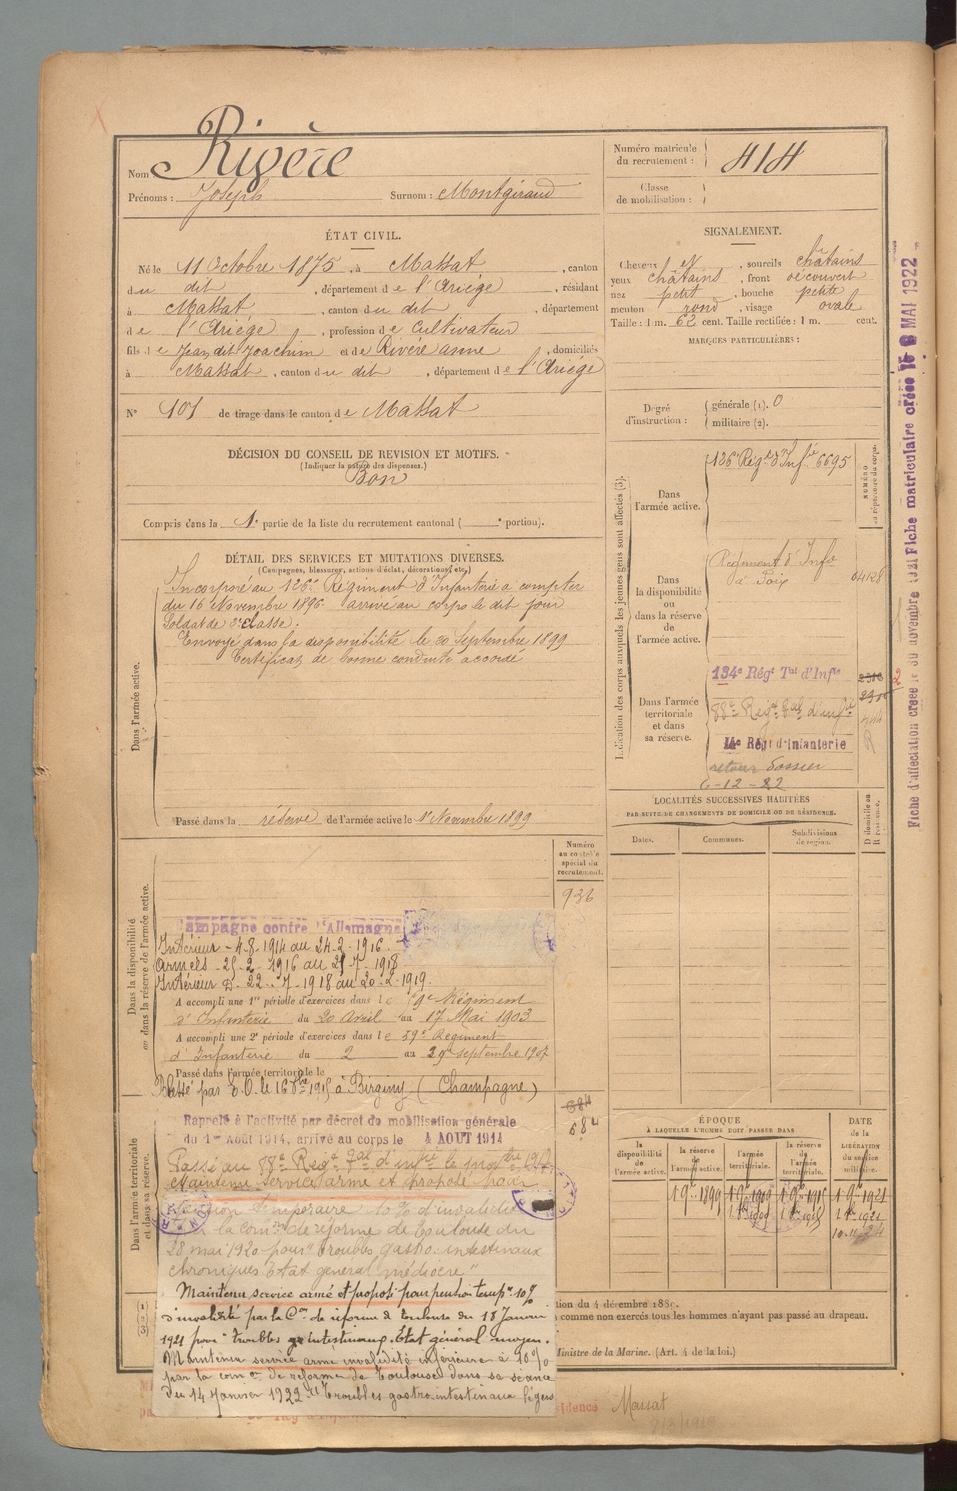 Nom Rivère
Prénoms : Joseph Surnom : Montgiraud
Numéro matricule du recrutement : 414
Classe de mobilisation :
ÉTAT CIVIL.
Né le 11 Octobre 1875, à Massat, canton
du dit, département de l'Ariège, résidant
à Massat, canton du dit, département
de l'Ariège, profession de Cultivateur
fils de Jean dit Joachim et de Rivère anne, domiciliés
à Massat, canton du dit, département de l'Ariège
N° 101 de tirage dans le canton de Massat
SIGNALEMENT.
Cheveux et sourcils châtains
yeux châtains, front découvert
nez petit, bouche petite
menton rond, visage ovale
Taille : 1 m. 62 cent. Taille rectifiée : 1 m. cent.
MARQUES PARTICULIÈRES :
Degré d'instruction : générale (1). 0
militaire (2).
DÉCISION DU CONSEIL DE REVISION ET MOTIFS.
(Indiquer la nature des dispenses.)
Bon
Compris dans la 1e partie de la liste du recrutement cantonal ( e portion).
DÉTAIL DES SERVICES ET MUTATIONS DIVERSES.
(Campagnes, blessures, actions d'éclat, décorations, etc.)
Dans l'armée active.
Incorporé au 126e Régiment d'Infanterie à compter
du 16 Novembre 1896 arrivé au corps le dit jour
Soldat de 2e classe.
Envoyé dans la disponibilité le 20 Septembre 1899
Certificat de bonne conduite accordé
Passé dans la réserve de l'armée active le 1er Novembre 1899
Indication des corps auxquels les jeunes gens sont affectés (3).
NUMÉRO au répertoire du corps.
Dans l'armée active.
126e Régt d'Infie 6695
Dans la disponibilité ou dans la réserve de l'armée active.
Régiment d'Infie
à Foix
Dans l'armée territoriale et dans sa réserve.
134e Régt Tal d'Infie
88e Regt Tal d'infie
14e Régt d'Infanterie
retour dossier
6-12-22
LOCALITÉS SUCCESSIVES HABITÉES
PAR SUITE DE CHANGEMENTS DE DOMICILE OU DE RÉSIDENCE.
Dates. Communes. Subdivisions de région. D domicile ou R résidence.
Dans la disponibilité ou dans la réserve de l'armée active.
Numéro au contrôle spécial du recrutement.
936
Campagne contre l'Allemagne
Intérieur - 4.8.1914 au 24.2.1916.
Armées - 25.2.1916 au 21.7.1918
Intérieur D. 22.7.1918 au 20.2.1919.
A accompli une 1re période d'exercices dans le Régiment
d'Infanterie du 20 Avril au 17 Mai 1903
A accompli une 2e période d'exercices dans le 59e Régiment
d'Infanterie du 2 au 29 septembre 1907
Passé dans l'armée territoriale le
(Champagne)
Dans l'armée territoriale et dans sa réserve.
684
584
Rappelé à l'activité par décret de mobilisation générale
du 1er Août 1914, arrivé au corps le 4 AOUT 1914
Passé au 88e Regt Tal d'infie le
Maintenu Service armé et proposé pour
pension temporaire 10% d'invalidité
par la comon de réforme de Toulouse du
28 mai 1920 pour "troubles gastro-intestinaux
chroniques Etat général médiocre"
Maintenu service armé et proposé pour pension tempre 10%
d'invalidité par la Con de réforme de Toulouse du 18 Janvier
1921 pour "troubles go intestinaux. Etat général moyen.
Maintenu service armé invalidité inférieure à 10%
par la comon de réforme de Toulouse dans sa séance
du 14 Janvier 1922 "Troubles gastro-intestinaux légers
ÉPOQUE
À LAQUELLE L'HOMME DOIT PASSER DANS
la disponibilité de l'armée active. la réserve de l'armée active. l'armée territoriale. la réserve de l'armée territoriale.
DATE de la LIBÉRATION du service militaire.
1 9bre 1899 1 9bre 1909 1 9bre 1915 1 9bre 1921
tion du 4 décembre 1889.
comme non exercés tous les hommes n'ayant pas passé au drapeau.
Ministre de la Marine. (Art. 4 de la loi.)
sidence Massat
Fiche d'affectation créée le 30 novembre 1921 Fiche matriculaire créée le MAI 1922